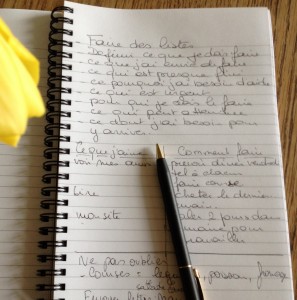 - Faire des listes
- Définir ce que je dois faire
- ce que j'ai envie de faire
- ce qui est presque fini
- ce pourquoi j'ai besoin d'aide
- ce qui est urgent
- pour qui je dois le faire
- ce qui peut attendre
- ce dont j'ai besoin pour
y arriver
Ce que j'aime Comment faire
voir mes amis prévoir dîner vendredi
tel à
faire
lire acheter le dernier
mon site aller 2 jours dans
pour
travailler
Ne pas oublier
- Courses : poisson, fromage
Envoyer lettre